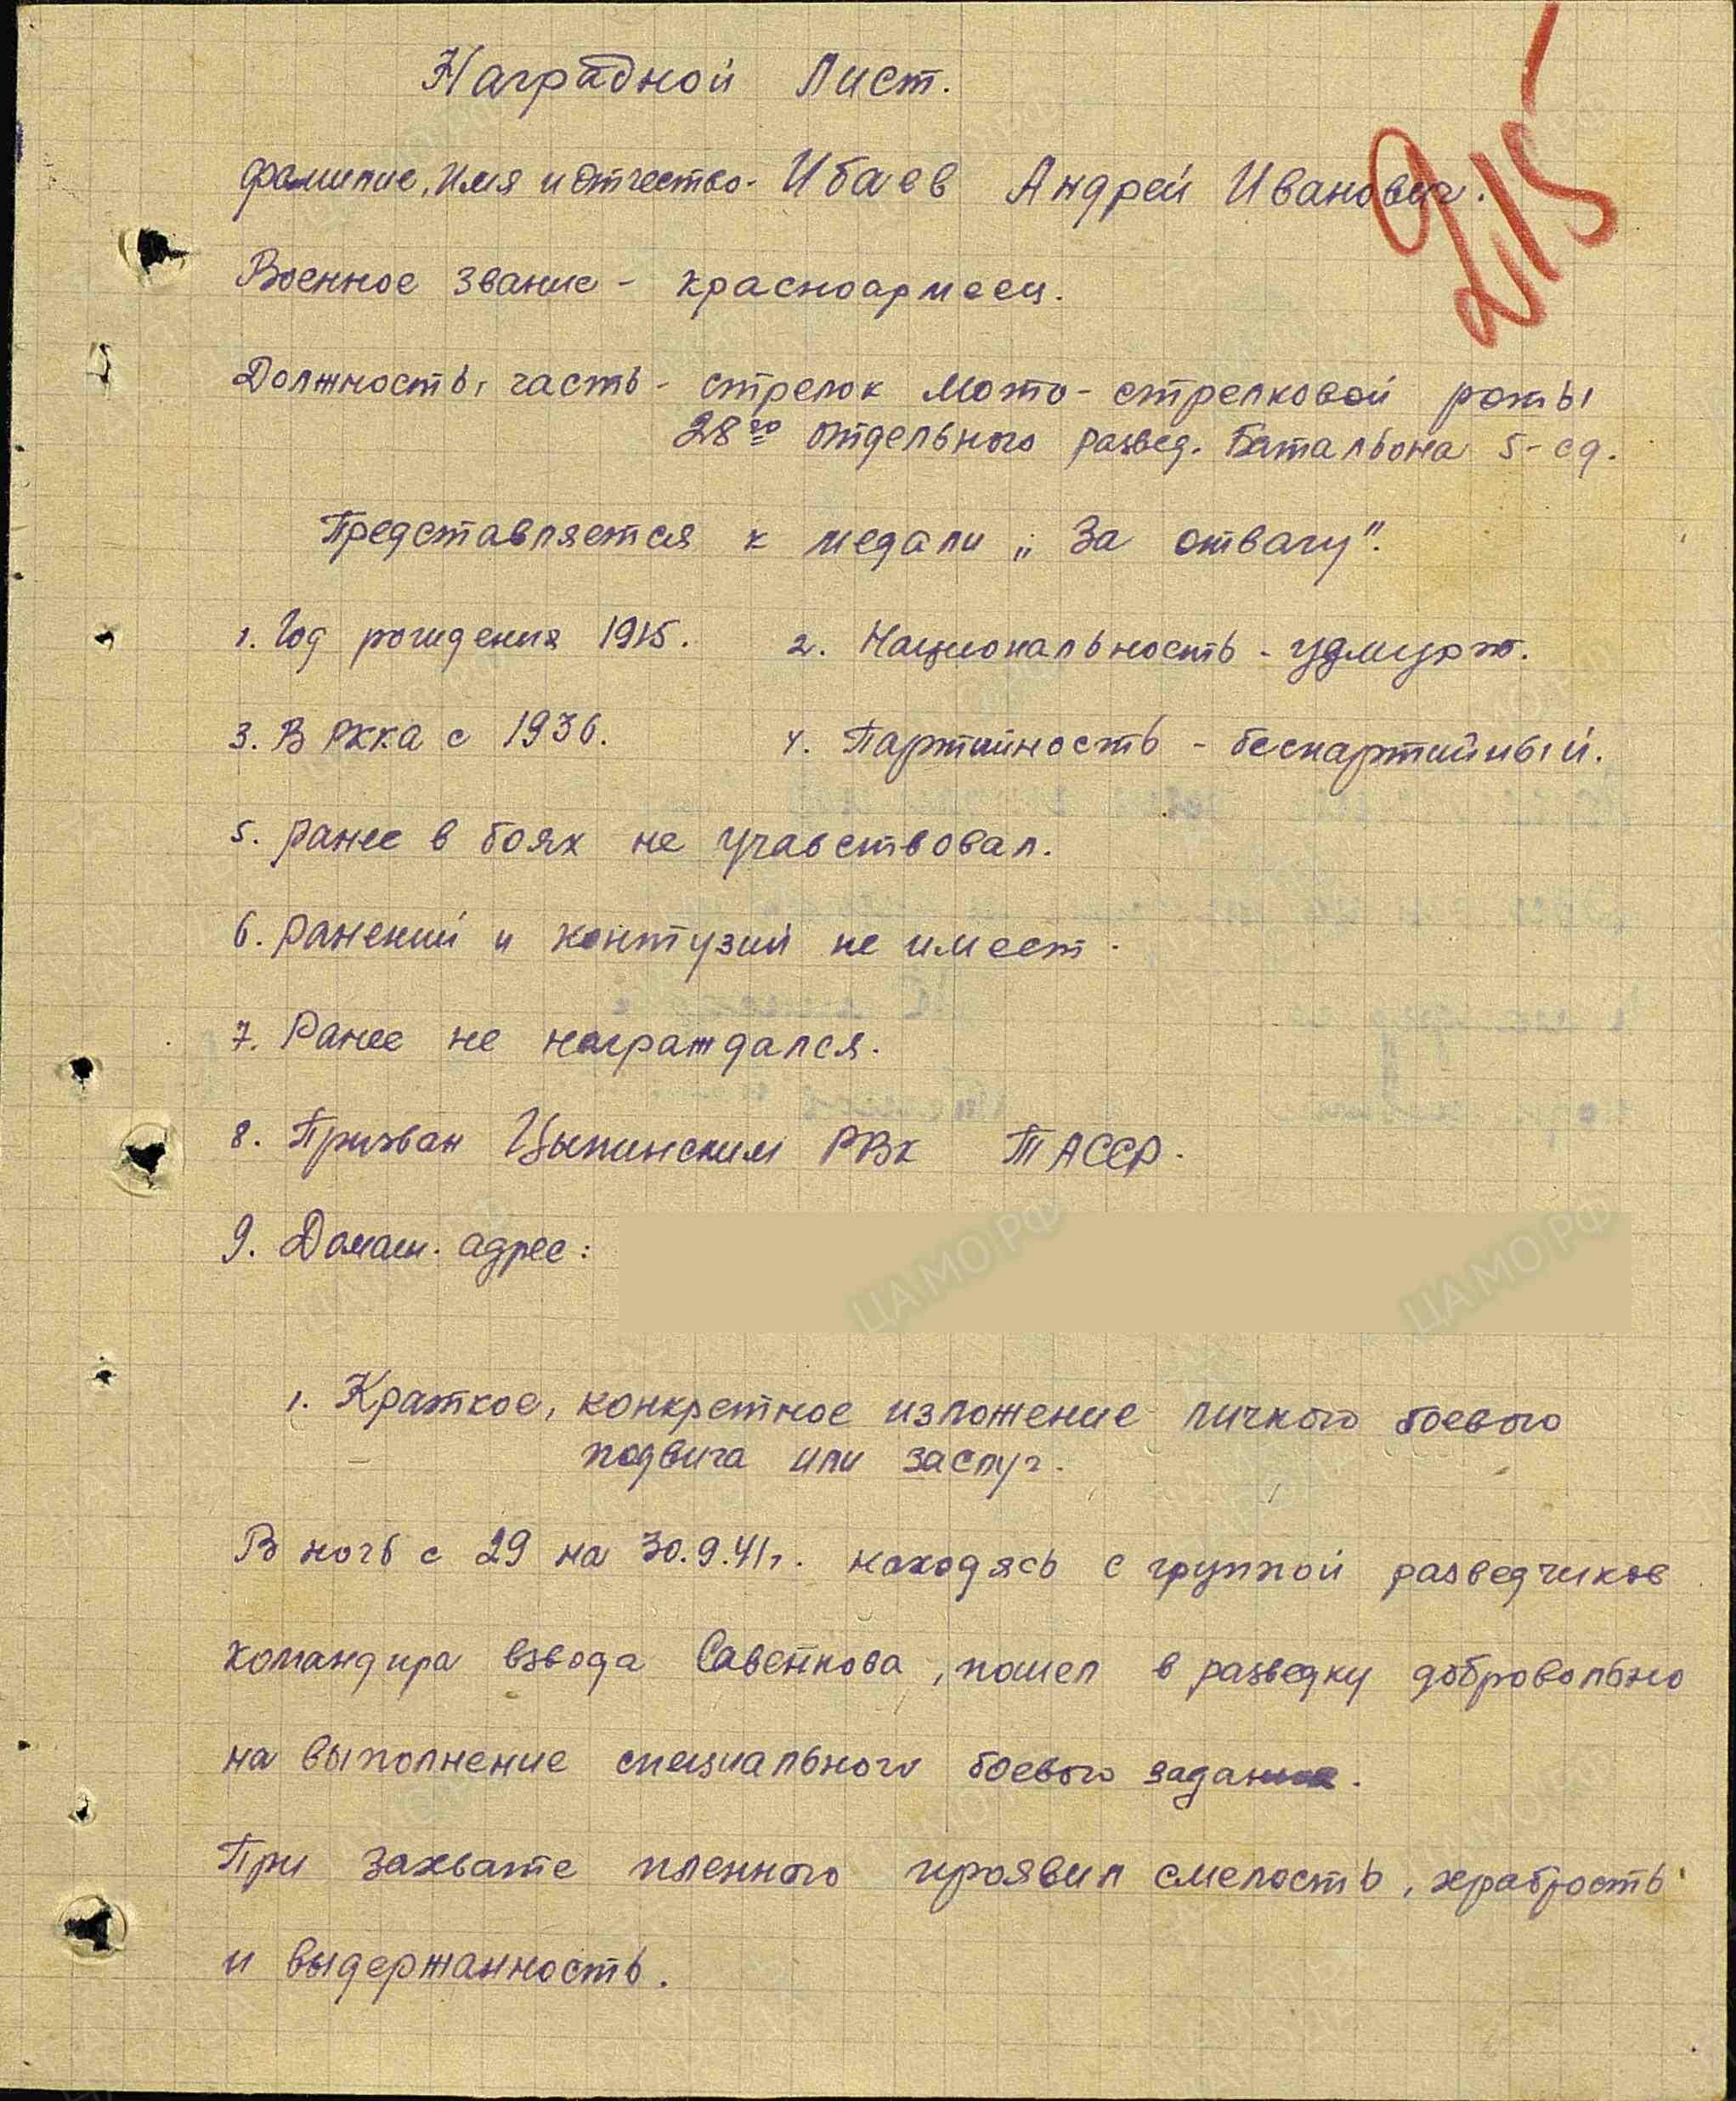 Наградной Лист.
215
Фамилие, Имя и Отчество - Ибаев Андрей Иванович.
Военное звание - красноармеец.
Должность, часть - стрелок мото-стрелковой роты
28го отдельного развед. Батальона 5-сд.
Представляется к медали „За отвагу".
1. Год рождения 1915. 2. Национальность - удмурт.
3. В РККА с 1936. 4. Партийность - беспартийный.
5. Ранее в боях не учавствовал.
6. Ранений и контузий не имеет.
7. Ранее не награждался.
8. Призван Цыпинским РВК ТАССР.
9. Домаш. адрес:
ЦАМО.РФ ЦАМО.РФ
1. Краткое, конкретное изложение личного боевого
подвига или заслуг.
В ночь с 29 на 30.9.41г. находясь с группой разведчиков
командира взвода Савенкова, пошел в разведку добровольно
на выполнение специального боевого задания.
При захвате пленного проявил смелость, храбрость
и выдержанность.